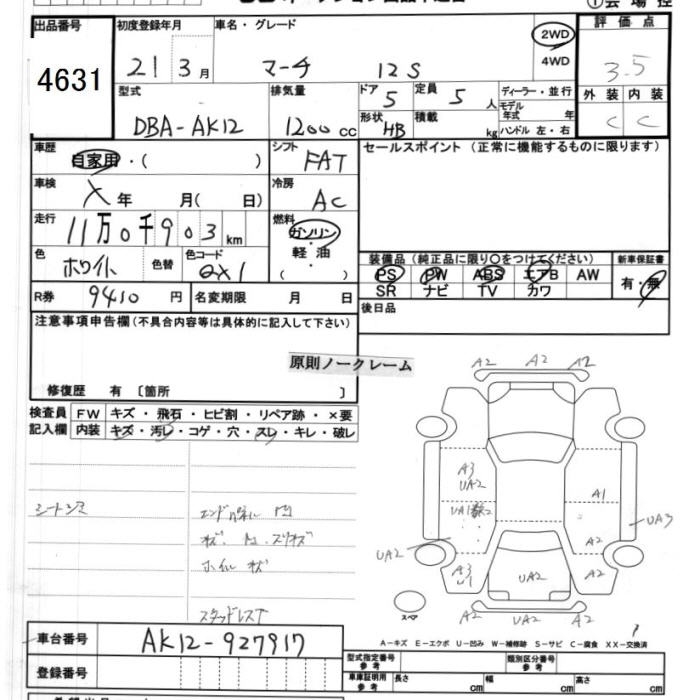 ①会場控
出品番号 初度登録年月 車名・グレード 評価点
4631 21年3月 マーチ 12S 2WD 4WD 3.5
型式 排気量 ドア 定員 ディーラー・並行 外装 内装
DBA-AK12 1200cc 5 5人 モデル年式 年 C C
形状 HB 積載 kg ハンドル 左・右
車歴 自家用・( ) シフト FAT セールスポイント(正常に機能するものに限ります)
車検 X年 月( 日) 冷房 AC
走行 11万0千903km 燃料 ガソリン・軽油 ( )
色 ホワイト 色替 色コード QX1
装備品(純正品に限り○をつけてください) 新車保証書
PS PW ABS エアB AW 有・無
SR ナビ TV カワ
R券 9410円 名変期限 月 日 後日品
注意事項申告欄(不具合内容等は具体的に記入して下さい)
原則ノークレーム
修復歴 有 〔箇所 〕
検査員 FW キズ・飛石・ヒビ割・リペア跡・×要
記入欄 内装 キズ・汚レ・コゲ・穴・スレ・キレ・破レ
A2 A2 A2
A3
UA2 A1
UA2 UA3
A2
A3 U1 UA2 A2
A2 UA2 A2
シートシミ
ホイルキズ
スタッドレス
スペア
A-キズ E-エクボ U-凹み W-補修跡 S-サビ C-腐食 XX-交換済
車台番号 AK12-927917
登録番号
型式指定番号 参考 類別区分番号 参考
車庫証明用 参考 長さ cm 幅 cm 高さ cm